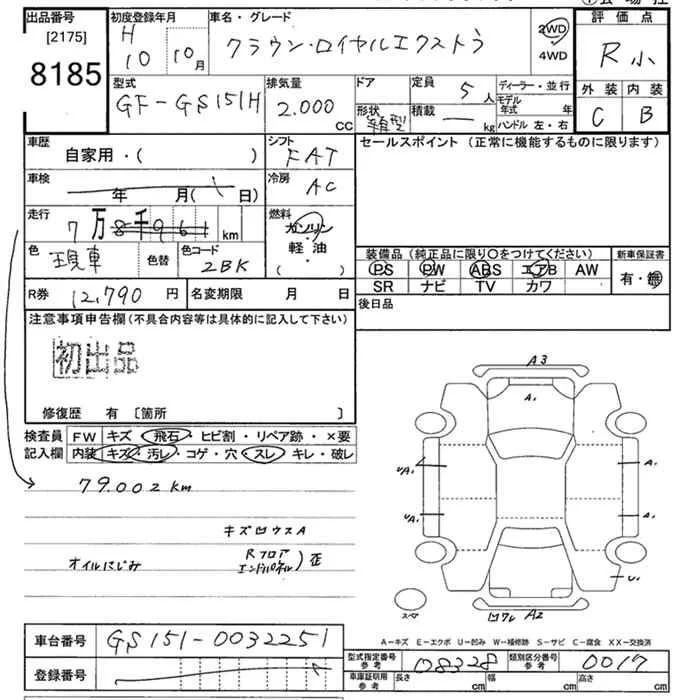 出品番号 初度登録年月 車名・グレード 評価点
[2175] H 10 10月 クラウン・ロイヤルエクストラ 2WD 4WD R小
8185
型式 排気量 ドア 定員 5人 ディーラー・並行 外装 内装
GF-GS151H 2.000 CC 形状 箱型 積載 kg モデル年式 年 ハンドル 左・右 C B
車歴 シフト セールスポイント (正常に機能するものに限ります)
自家用・( ) FAT
車検 冷房
年 月( 日) AC
走行 燃料
7万8千961 km ガソリン
軽・油
( ・ )
色 現車 色替 色コード 2BK
装備品 (純正品に限り○をつけてください) 新車保証書
PS PW ABS エアB AW 有・無
SR ナビ TV カワ
R券 12,790 円 名変期限 月 日
後日品
注意事項申告欄(不具合内容等は具体的に記入して下さい)
初出品
修復歴 有 〔箇所 〕
検査員 FW キズ・飛石・ヒビ割・リペア跡・×要
記入欄 内装 キズ・汚レ・コゲ・穴・スレ・キレ・破レ
79.002km
キズ凹ウスA
オイルにじみ Rフロア エンドパネル)歪
A3
A1
UA1 A1
UA1 A1
U1
スペア 凹ワレ A2
A-キズ E-エクボ U-凹み W-補修跡 S-サビ C-腐食 XX-交換済
車台番号 GS151-0032251
型式指定番号 参考 08328 類別区分番号 参考 0017
登録番号
車庫証明用 参考 長さ cm 幅 cm 高さ cm